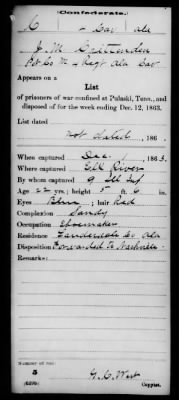 Confederate.
C - Cav Ala
J. M. Crittenden
Pvt Co M 4 Regt Ala Cav
Appears on a
List
of prisoners of war confined at Pulaski, Tenn., and
disposed of for the week ending Dec. 12, 1863.
List dated
not dated, 186 .
When captured Dec. , 1863.
Where captured Elk River
By whom captured 9 Ill Inf
Age 22 yrs.; height 5 ft. 6 in.
Eyes Blue; hair Red
Complexion Sandy
Occupation Shoemaker
Residence Lauderdale Co Ala
Disposition Forwarded to Nashville
Remarks:
Number of roll:
5
(639b)
Copyist.